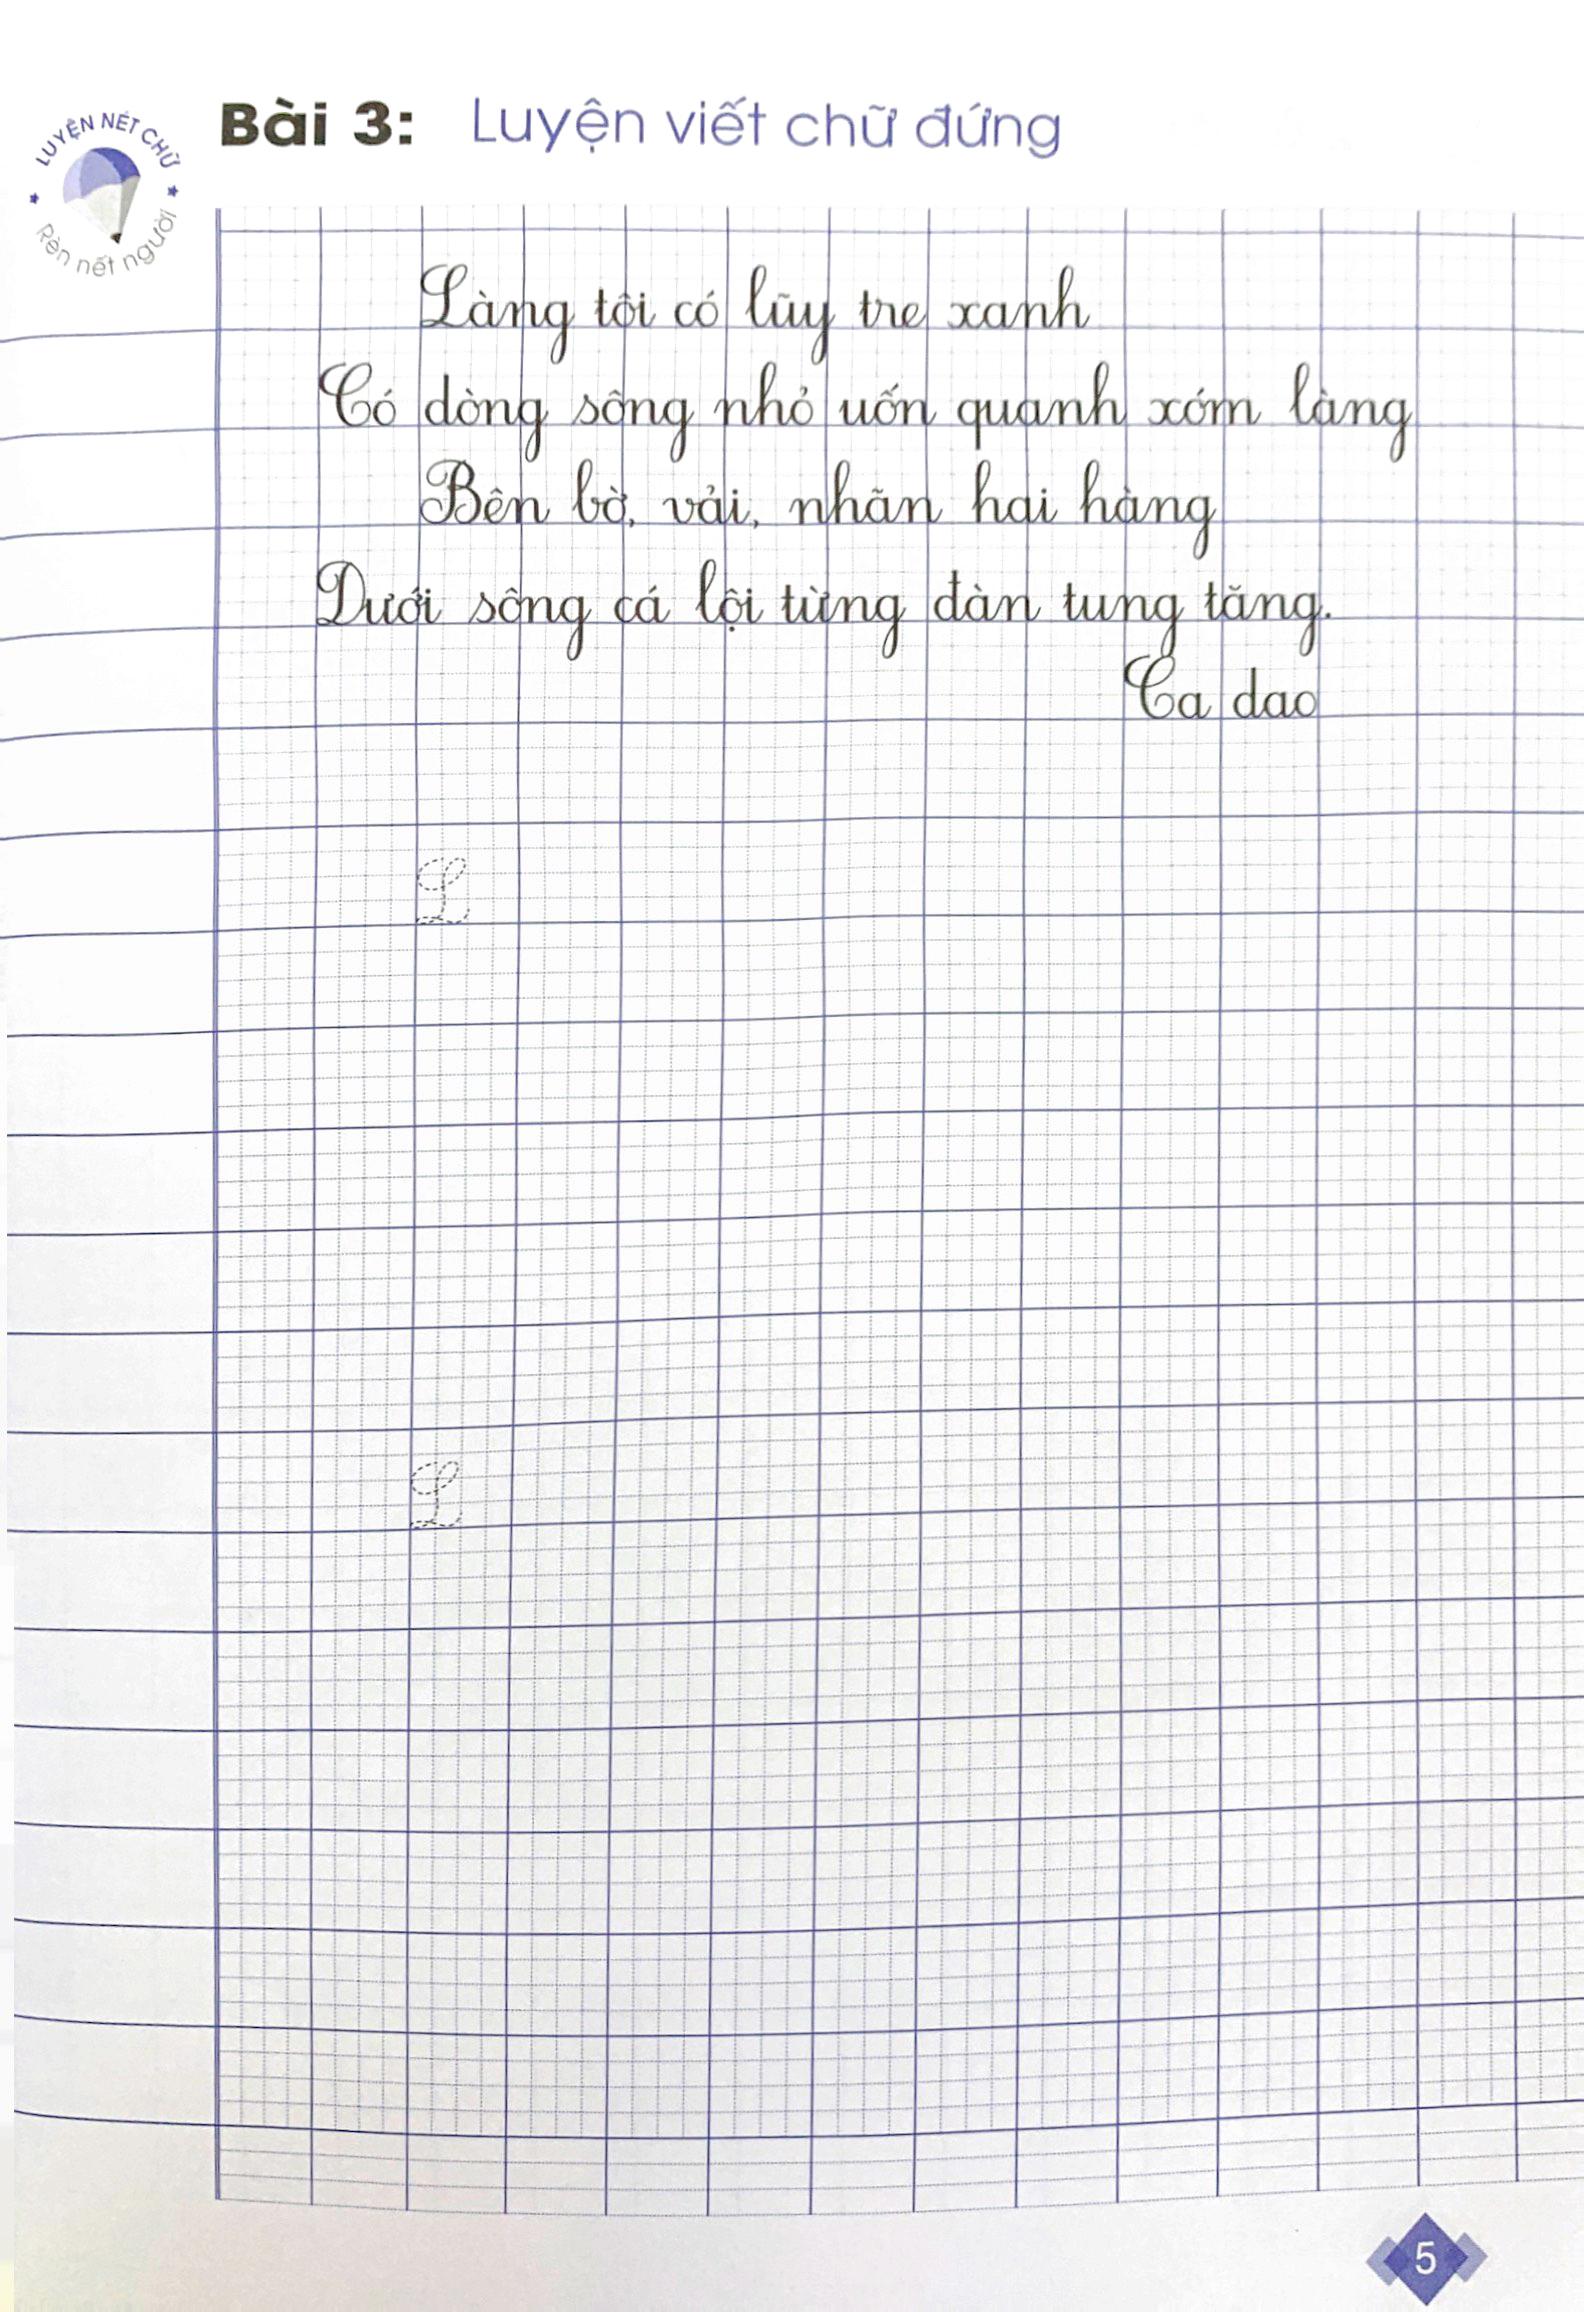 LUYỆN NÉT CHỮ
Rèn nết người
Bài 3: Luyện viết chữ đứng
Làng tôi có lũy tre xanh
Có dòng sông nhỏ uốn quanh xóm làng
Bên bờ, vải, nhãn hai hàng
Dưới sông cá lội từng đàn tung tăng.
Ca dao
L
L
5